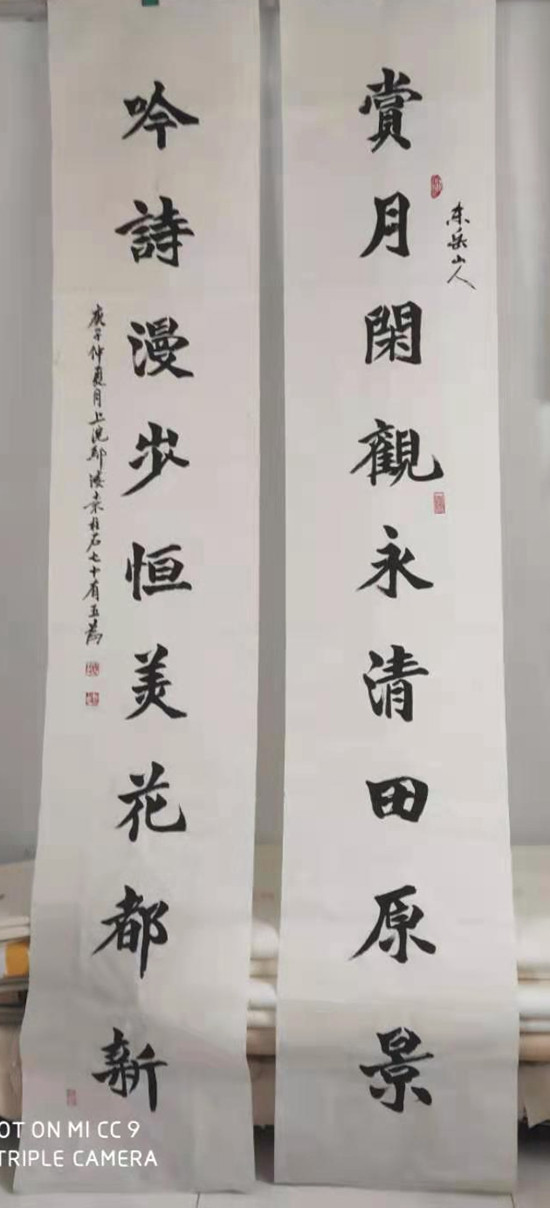 东岳山人
賞月閑觀永清田原景
吟詩漫步恒美花都新
庚子仲夏月上浣柱石七十有五
OT ON MI CC 9
TRIPLE CAMERA